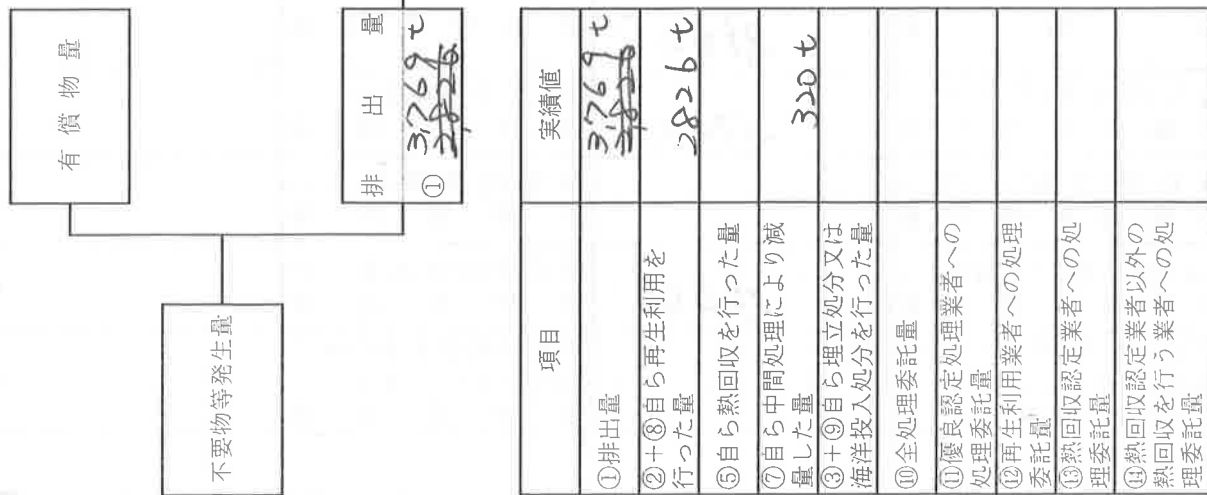 有償物量
不要物等発生量
排出量
①
3,769 t
2,826
項目
実績値
①排出量
3,769 t
2,826
②+⑧自ら再生利用を
行った量
2826 t
⑤自ら熱回収を行った量
⑦自ら中間処理により減
量した量
320 t
③+⑨自ら埋立処分又は
海洋投入処分を行った量
⑩全処理委託量
⑪優良認定処理業者への
処理委託量
⑫再生利用業者への処理
委託量
⑬熱回収認定業者への処
理委託量
⑭熱回収認定業者以外の
熱回収を行う業者への処
理委託量